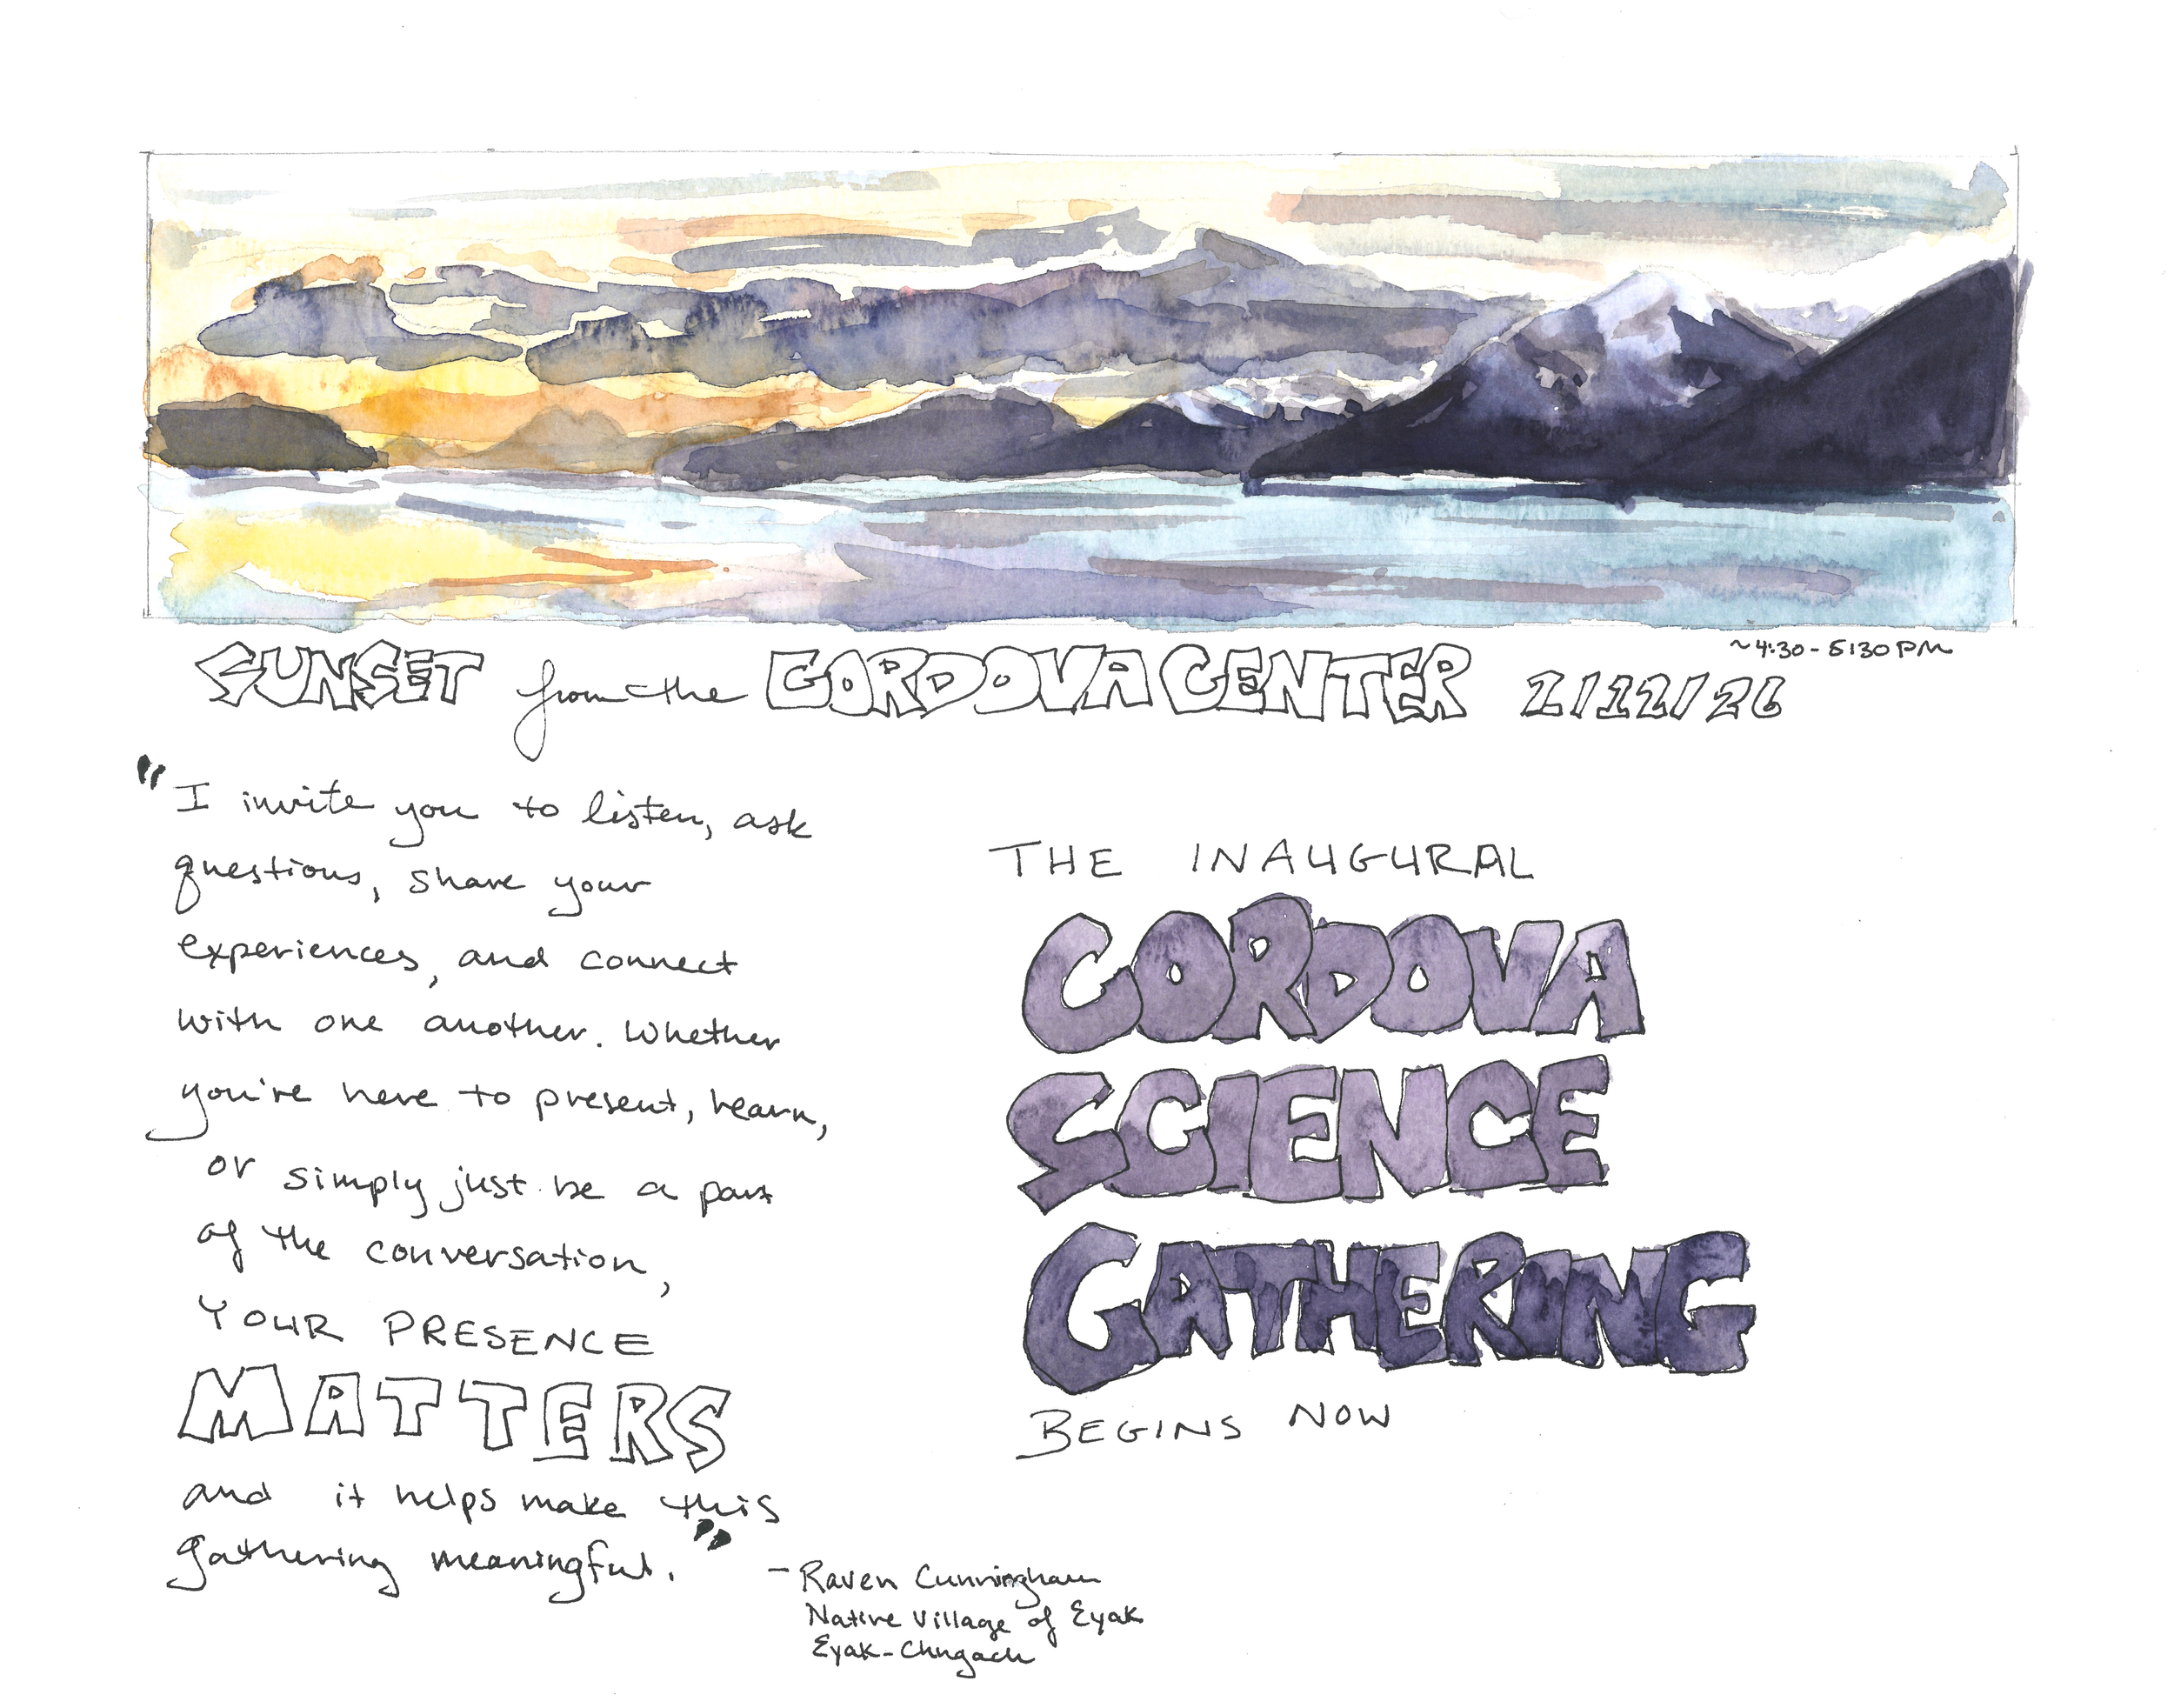 ~4:30-5:30 PM
SUNSET from the CORDOVA CENTER 2/12/26
"I invite you to listen, ask
questions, share your
experiences, and connect
with one another. Whether
you're here to present, learn,
or simply just be a part
of the conversation,
YOUR PRESENCE
MATTERS
and it helps make this
gathering meaningful."
- Raven Cunningham
Native Village of Eyak
Eyak-Chugach
THE INAUGURAL
CORDOVA
SCIENCE
GATHERING
BEGINS NOW